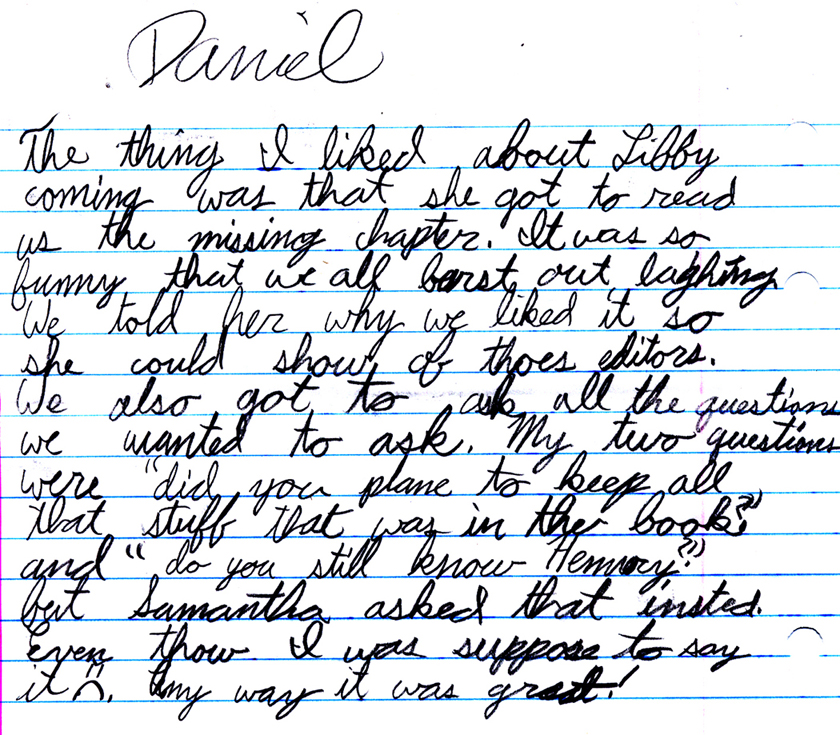 Daniel
The thing I liked about Libby
coming was that she got to read
us the missing chapter. It was so
funny that we all barst out laghing
We told her why we liked it so
she could show of thoes editors.
We also got to ask all the questions
we wanted to ask. My two questions
were "did you plane to keep all
that stuff that was in the book?"
and "do you still know Hennry?"
but Samantha asked that insted.
Even thow I was suppose to say
it :(. Any way it was great!